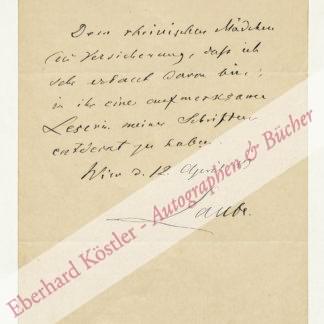 Dem rheinischen Mädchen
die Versicherung, daß ich
sehr erbaut davon bin,
in ihr eine aufmerksame
Leserin meiner Schriften
entdeckt zu haben.
Wien d. 12. April
Laube.
Eberhard Köstler - Autographen & Bücher